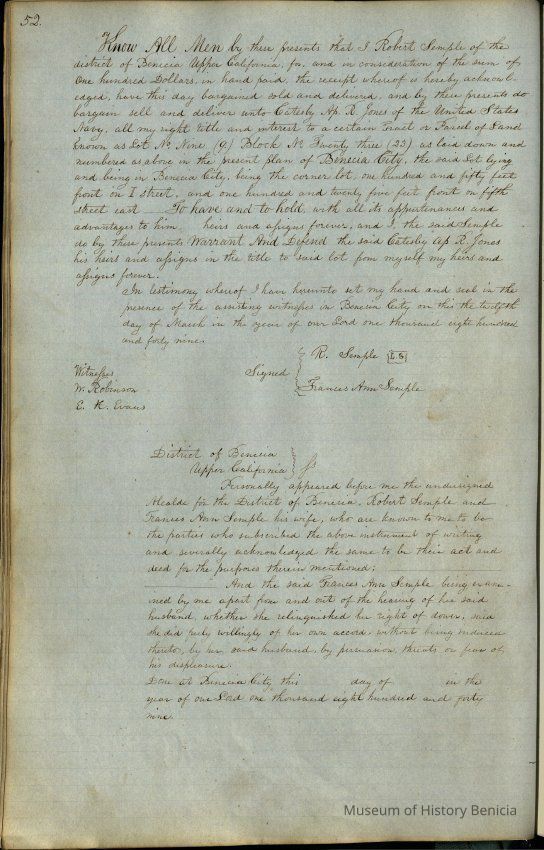 52.
Know All Men by these presents that I Robert Semple of the
district of Benicia Upper California, for, and in consideration of the sum of
One hundred Dollars, in hand paid, the receipt whereof is hereby acknowl-
edged, have this day bargained sold and delivered, and by these presents do
bargain sell and deliver unto Catesby Ap R. Jones of the United States
Navy, all my right title and interest to a certain Tract or Parcel of Land
known as Lot No Nine (9) Block No Twenty three (23) as laid down and
numbered as above in the present plan of Benicia City, the said Lot lying
and being in Benicia City, being the corner lot, one hundred and fifty feet
front on I street, and one hundred and twenty five feet front on fifth
street east To have and to hold, with all its appurtenances and
advantages to him heirs and assigns forever, and I, the said Semple
do by these presents Warrant And Defend the said Catesby Ap R. Jones
his heirs and assigns in the title to said lot from myself my heirs and
assigns forever.
In testimony whereof I have hereunto set my hand and seal in the
presence of the assisting witnesses in Benicia City on this the twelfth
day of March in the year of our Lord one thousand eight hundred
and forty nine.
Witnesses
W. Robinson
E. H. Evans
Signed
R. Semple L.S
Frances Ann Semple
District of Benicia
Upper California ss
Personally appeared before me the undersigned
Alcalde for the District of Benicia, Robert Semple and
Frances Ann Semple his wife, who are known to me to be
the parties who subscribed the above instrument of writing
and severally acknowledged the same to be their act and
deed for the purposes therein mentioned;
And the said Frances Ann Semple being exam-
ined by me apart from and out of the hearing of her said
husband, whether she relinquished her right of dower, said
she did freely willingly of her own accord, without being induced
thereto, by her said husband, by persuasion, threats or fear of
his displeasure.
Done at Benicia City this day of in the
year of our Lord one thousand eight hundred and forty
nine.
Museum of History Benicia